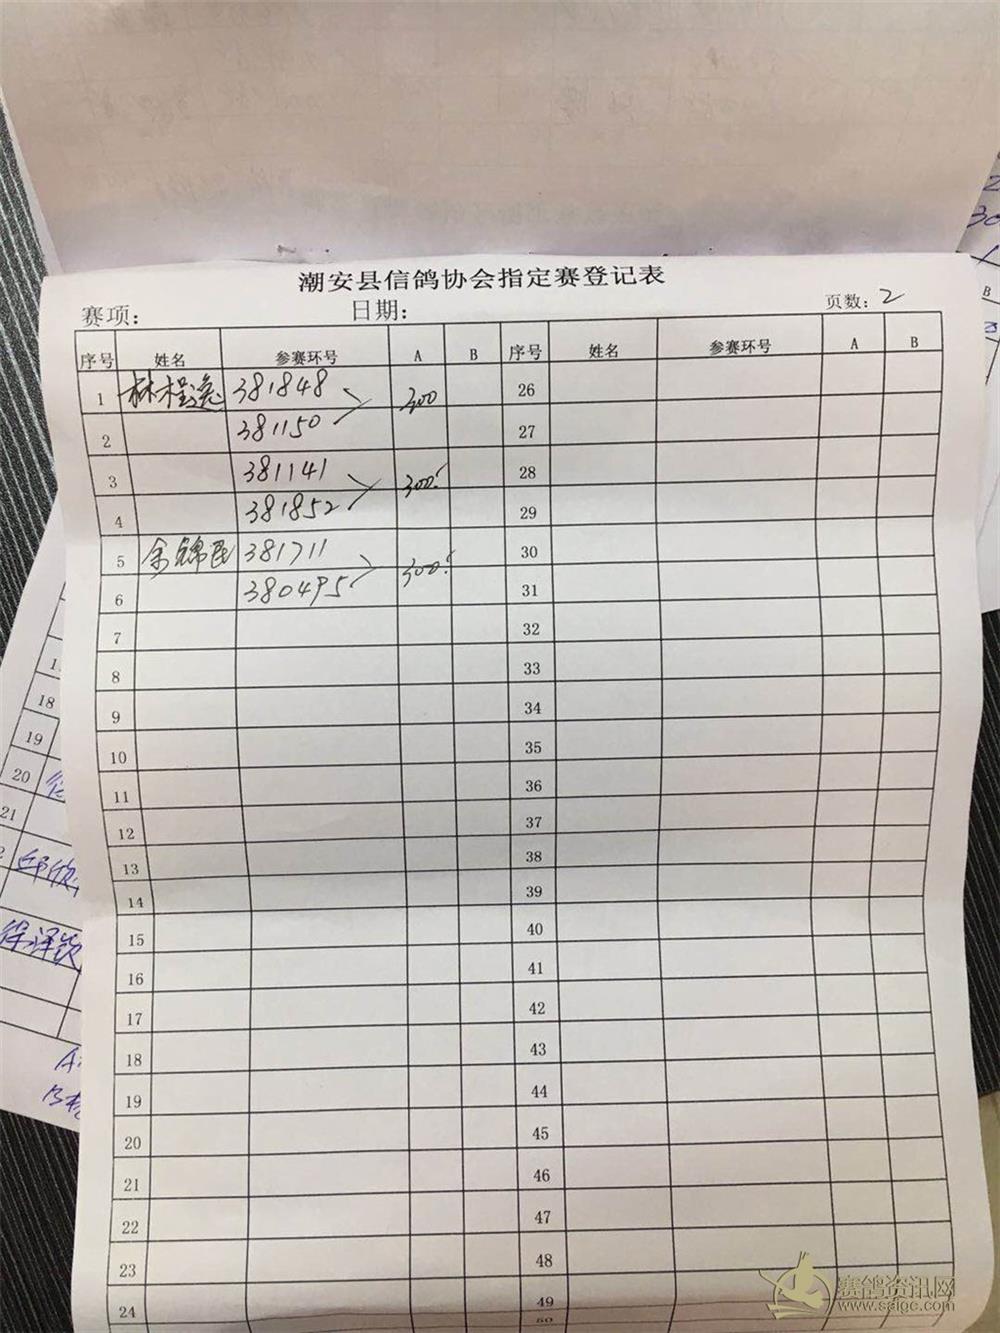 潮安县信鸽协会指定赛登记表
赛项: 日期: 页数: 2
序号 姓名 参赛环号 A B 序号 姓名 参赛环号 A B
1 林桂逸 381848 300 26
2 381150 27
3 381141 300 28
4 381852 29
5 余锦民 381711 300 30
6 380495 31
7 32
8 33
9 34
10 35
11 36
12 37
13 38
14 39
15 40
16 41
17 42
18 43
19 44
20 45
21 46
22 47
23 48
24 49
50
18
19
20
21
B
30
赛鸽资讯网
www.saige.com